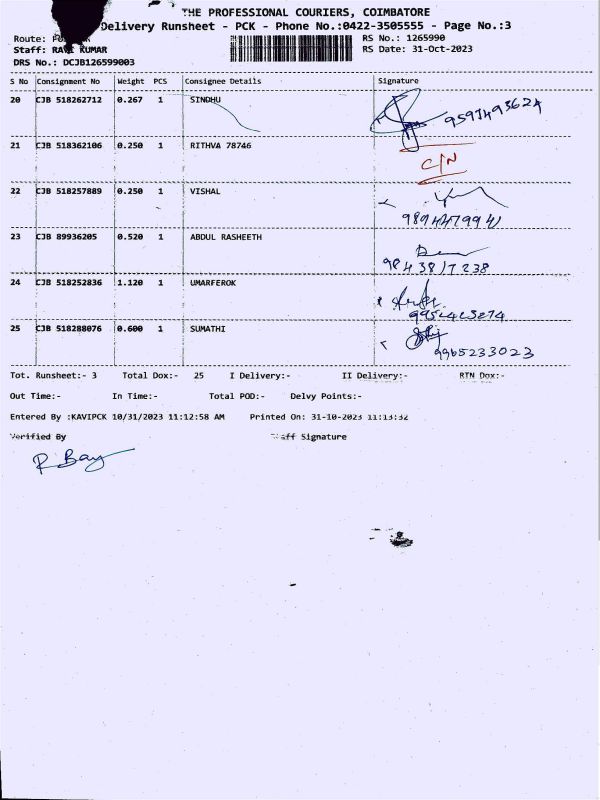 THE PROFESSIONAL COURIERS, COIMBATORE
Delivery Runsheet - PCK - Phone No.:0422-3505555 - Page No.:3
Route: RS No.: 1265990
Staff: RAVI KUMAR RS Date: 31-Oct-2023
DRS No.: DCJB126599003
S No Consignment No Weight PCS Consignee Details Signature
20 CJB 518262712 0.267 1 SINDHU
21 CJB 518362106 0.250 1 RITHVA 78746 C/N
22 CJB 518257889 0.250 1 VISHAL
23 CJB 89936205 0.520 1 ABDUL RASHEETH
9843817238
24 CJB 518252836 1.120 1 UMARFEROK
25 CJB 518288076 0.600 1 SUMATHI
9965233023
Tot. Runsheet:- 3 Total Dox:- 25 I Delivery:- II Delivery:- RTN Dox:-
Out Time:- In Time:- Total POD:- Delvy Points:-
Entered By :KAVIPCK 10/31/2023 11:12:58 AM Printed On: 31-10-2023 11:13:32
Verified By Staff Signature